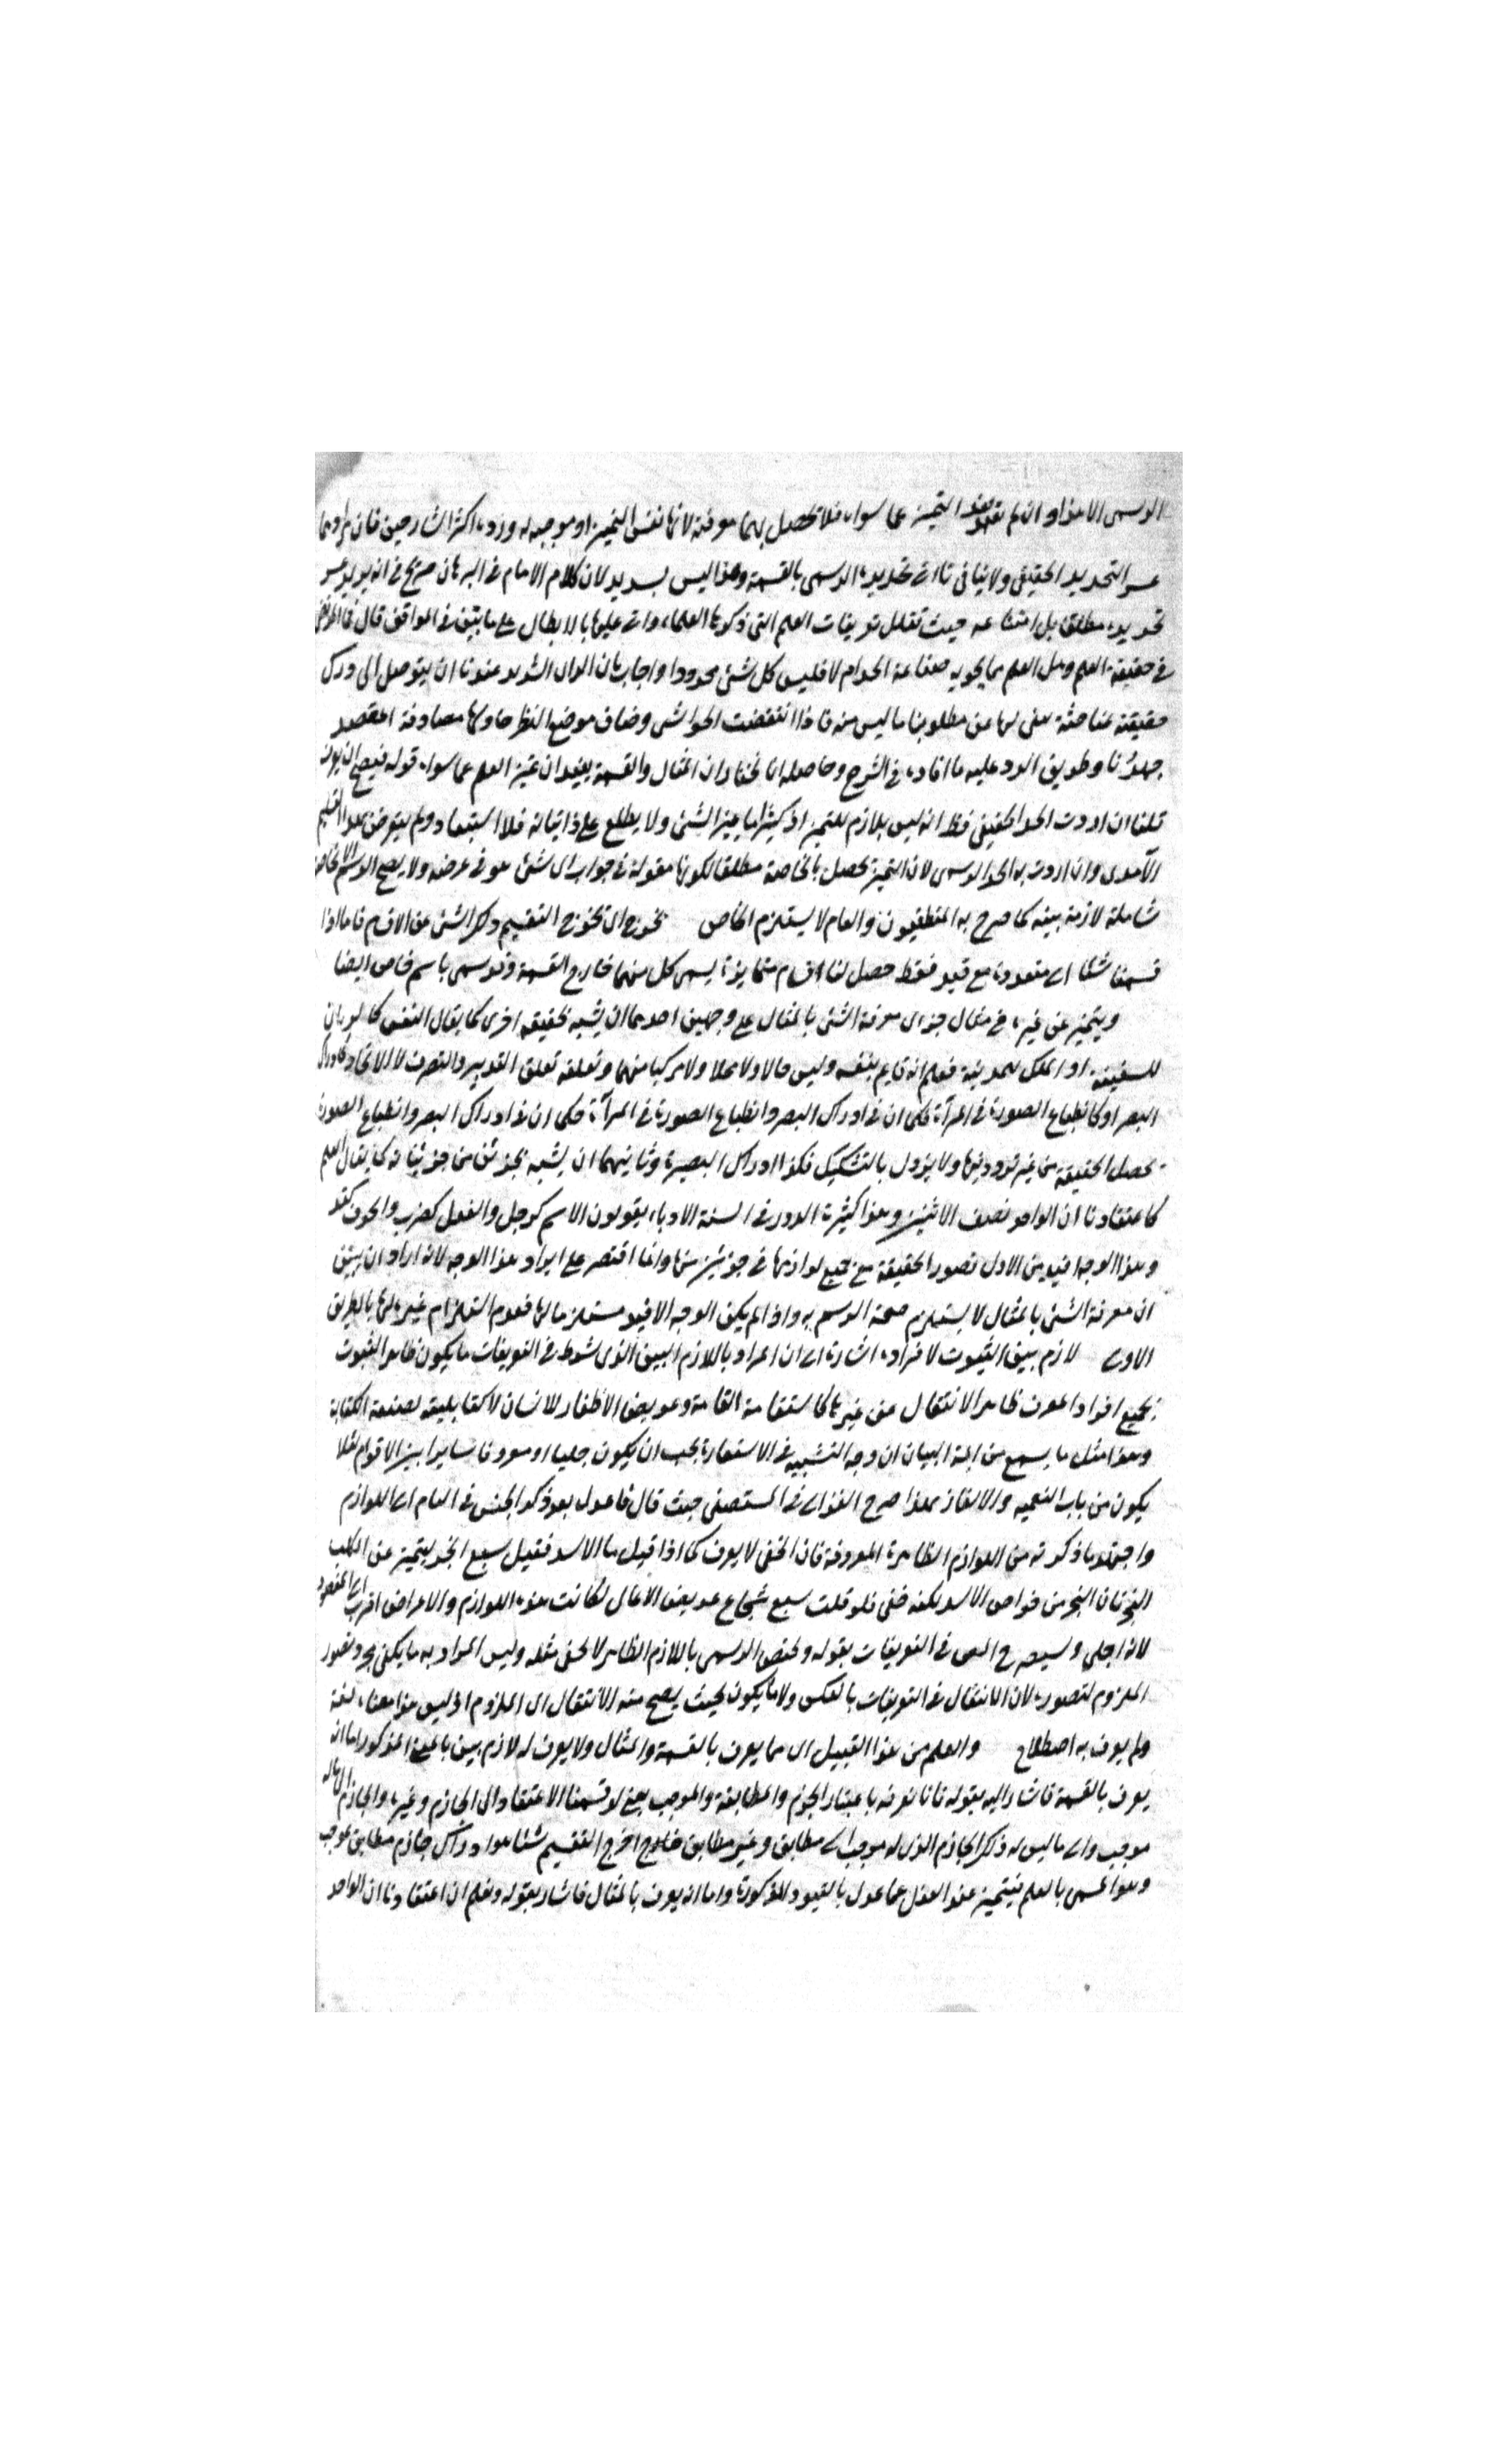 الرسمى الا هذا وان لم تفد التميز عما سواه فلا تحصل بهما معرفة لانها نفس التميز او موجبه له وردد اكثر الشارحين فان مرادهما
عسر التحديد الحقيقى ولا ينافى تأتى تحديده الرسمى بالقسمة وهذا ليس بسديد لان كلام الامام فى البرهان صريح فى انه يريد عسر
تحديده مطلقا بل امتناعه حيث نقل تعريفات العلم التى ذكرها العلماء واتى عليها بالابطال على ما بين فى المواقف قال
فى حقيقة العلم وهل العلم مما يحويه صناعة الحد ام لا فليس كل شئ محدودا واجاب بان الراى السديد عندنا ان يتوصل الى درك
حقيقته بمباحثة نبغى بها عن مطلوبنا ما ليس منه فاذا انتفضت الحواشى وضاق موضع النظر حاولنا مصادفة المقصد
جهدنا وطريق الرد عليه ما افاده فى الشرح وحاصله انا نختار ان المثال والقسمة يفيدان تميز العلم عما سواه قوله فيصح ان يعرف
قلنا ان اردت الحد الحقيقى فظ انه ليس بلازم للتميز اذ كثيرا ما يميز الشئ ولا يطلع على ذاتياته فلا استبعاد ولم يتعرض لهذا القسم
الآمدى وان اردت به الحد الرسمى لان التميز يحصل بالخاصة مطلقا لكونها مقولة فى جواب اى شئ هو فى عرضه ولا يصح الرسم الا بخاصة
شاملة لازمة بينة كما صرح به المنطقيون والعام لا يستلزم الخاص نخرج اى نخرج التقسيم وكل شئ عن الاقسام فاما اذا
قسمنا شيئا الى متعدده مع قيد فقط حصل لنا اقسام متمايزة يسمى كل منهما خارج القسمة وقد سمى باسم خاص ايضا
ويتميز عن غيره فى مثال جزى معرفة الشئ بالمثال على وجهين احدهما ان يشبه بحقيقة اخرى كما يقال النفس كالربان
للسفينة او الملك للمدينة فعلم انه قايم بنفسه وليس حالا ولا محلا ولا مركبا منهما وتعلقه تعلق التدبير والتصرف لا الاتحاد وكادراك
البصر او كانطباع الصورة فى المرآة فكما ان فى ادراك البصر وانطباع الصورة فى المرآة فكما ان فى ادراك البصر وانطباع الصورة
يحصل الحقيقة من غير تردد فيها ولا يزول بالتشكيك فكذا ادراك البصيرة وثانيهما ان يشبه بجزئى من جزئياته كما يقال العلم
كاعتقادنا ان الواحد نصف الاثنين وهذا كثيرة الدور فى السنة الادباء يقولون الاسم كرجل والفعل كضرب والحرف كقد
وهذا الوجه افيد من الاول تصور الحقيقة مع جميع لوازمها فى جزئى منها وانما اقتصر على ايراد هذا الوجه لانه اراد ان يبين
ان معرفة الشئ بالمثال لا يستلزم صحة الرسم به واذا لم يكن الوجه الافيد مستلزما لها فعدم استلزام غيره لها بالطريق
الاولى لازم بين الثبوت لافراده اشارة الى ان المراد باللازم البين الذى شرط فى التعريفات ما يكون ظاهر الثبوت
لجميع افراد المعرف ظاهر الانتقال عن غيرها كاستقامة القامة وعريض الاظفار للانسان لا كقابليته لصنعة الكتابة
وهذا مثل ما يسمع من ائمة البيان ان وجه التشبيه فى الاستعارة يجب ان يكون جليا او معروفا سايرا بين الاقوام لئلا
يكون من باب التعمية والالغاز بهذا صرح الغزالى فى المستصفى حيث قال فاعدل بعد ذكر الجنس فى العام الى اللوازم
واجتهد بما ذكرته من اللوازم الظاهرة المعروفة فان الخفى لا يعرف كما اذا قيل ما الاسد فقيل سبع ابخر ليتميز عن الكلب
البخر فان البخر من خواص الاسد لكنه خفى فلو قلت سبع شجاع عريض الاعالى لكانت هذه اللوازم والاعراض اقرب الى المقصود
لانه اجلى وسيصرح المص فى التعريفات بقوله ويختص الرسمى باللازم الظاهر لا بخفى مثله وليس المراد به ما يكفى مجرد تصور
الملزوم لتصوره لان الانتقال فى التعريفات بالعكس ولا ما يكون بحيث يصح منه الانتقال الى الملزوم اذ ليس هذا معناه لغة
ولم يعرف به اصطلاح والعلم من هذا القبيل اى مما يعرف بالقسمة والمثال ولا يعرف له لازم بين بالمعنى المذكور اما انه
يعرف بالقسمة فاشار اليه بقوله فانا نعرفه باعتبار الجزم والمطابقة والموجب يعنى لو قسمنا الاعتقاد الى الجازم وغيره والجازم الى ما له
موجب والى ما ليس له ذلك والجازم الذى له موجب الى مطابق وغير مطابق خارج اخرج التقسيم شيئا هو ادراك جازم مطابق لموجب
وهو المسمى بالعلم فيتميز عند العقل عما عداه بالقيود المذكورة واما انه يعرف بالمثال فاشار بقوله ونعلم ان اعتقادنا ان الواحد